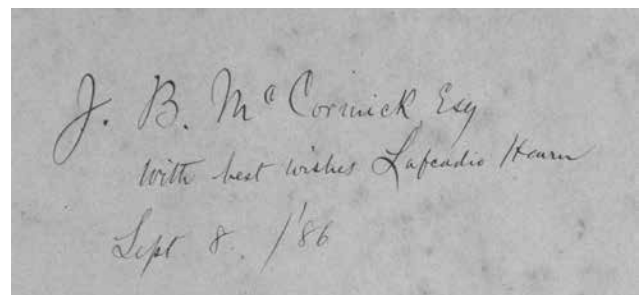 J. B. McCormick, Esq
with best wishes Lafcadio Hearn
Sept 8. /'86